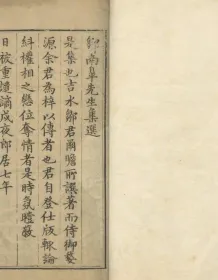 鄒南皐先生集選
是集也吉水鄒君爾瞻所譔著而侍御婺
源余君為梓以傳者也君自登仕版輙論
糾權相之戀位奪情者是時氛曀蔽
日被重譴謫戍夜郎居七年